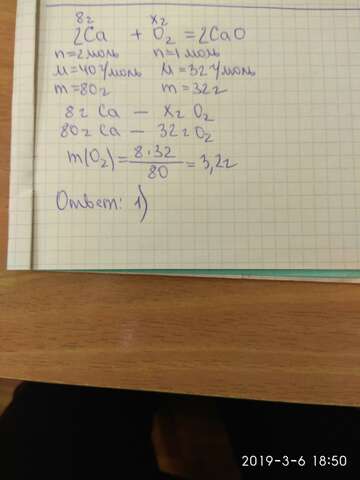 8г x г
2Ca + O₂ = 2CaO
n=2моль n=1моль
M=40г/моль M=32г/моль
m=80г m=32г
8г Ca — xг O₂
80г Ca — 32г O₂
m(O₂) = 8·32/80 = 3,2г
Ответ: 1)
2019-3-6 18:50